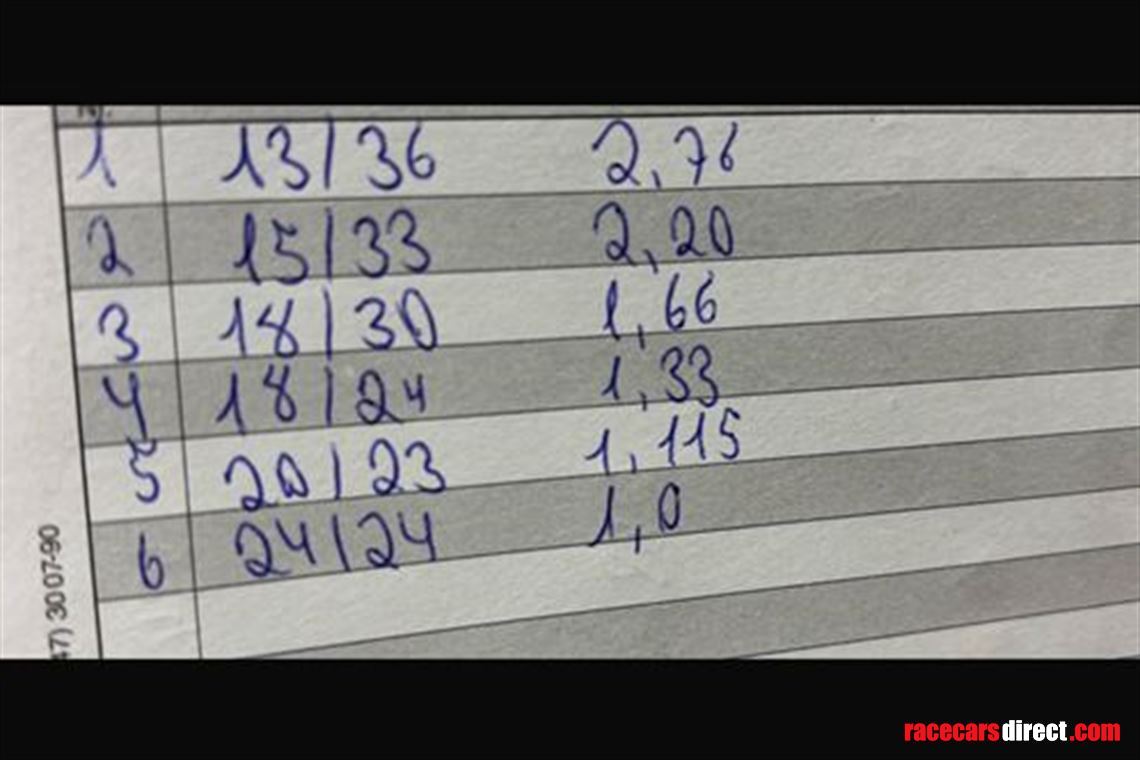 1 13/36 2,76
2 15/33 2,20
3 18/30 1,66
4 18/24 1,33
5 20/23 1,115
6 24/24 1,0
47) 30 07-90
racecarsdirect.com